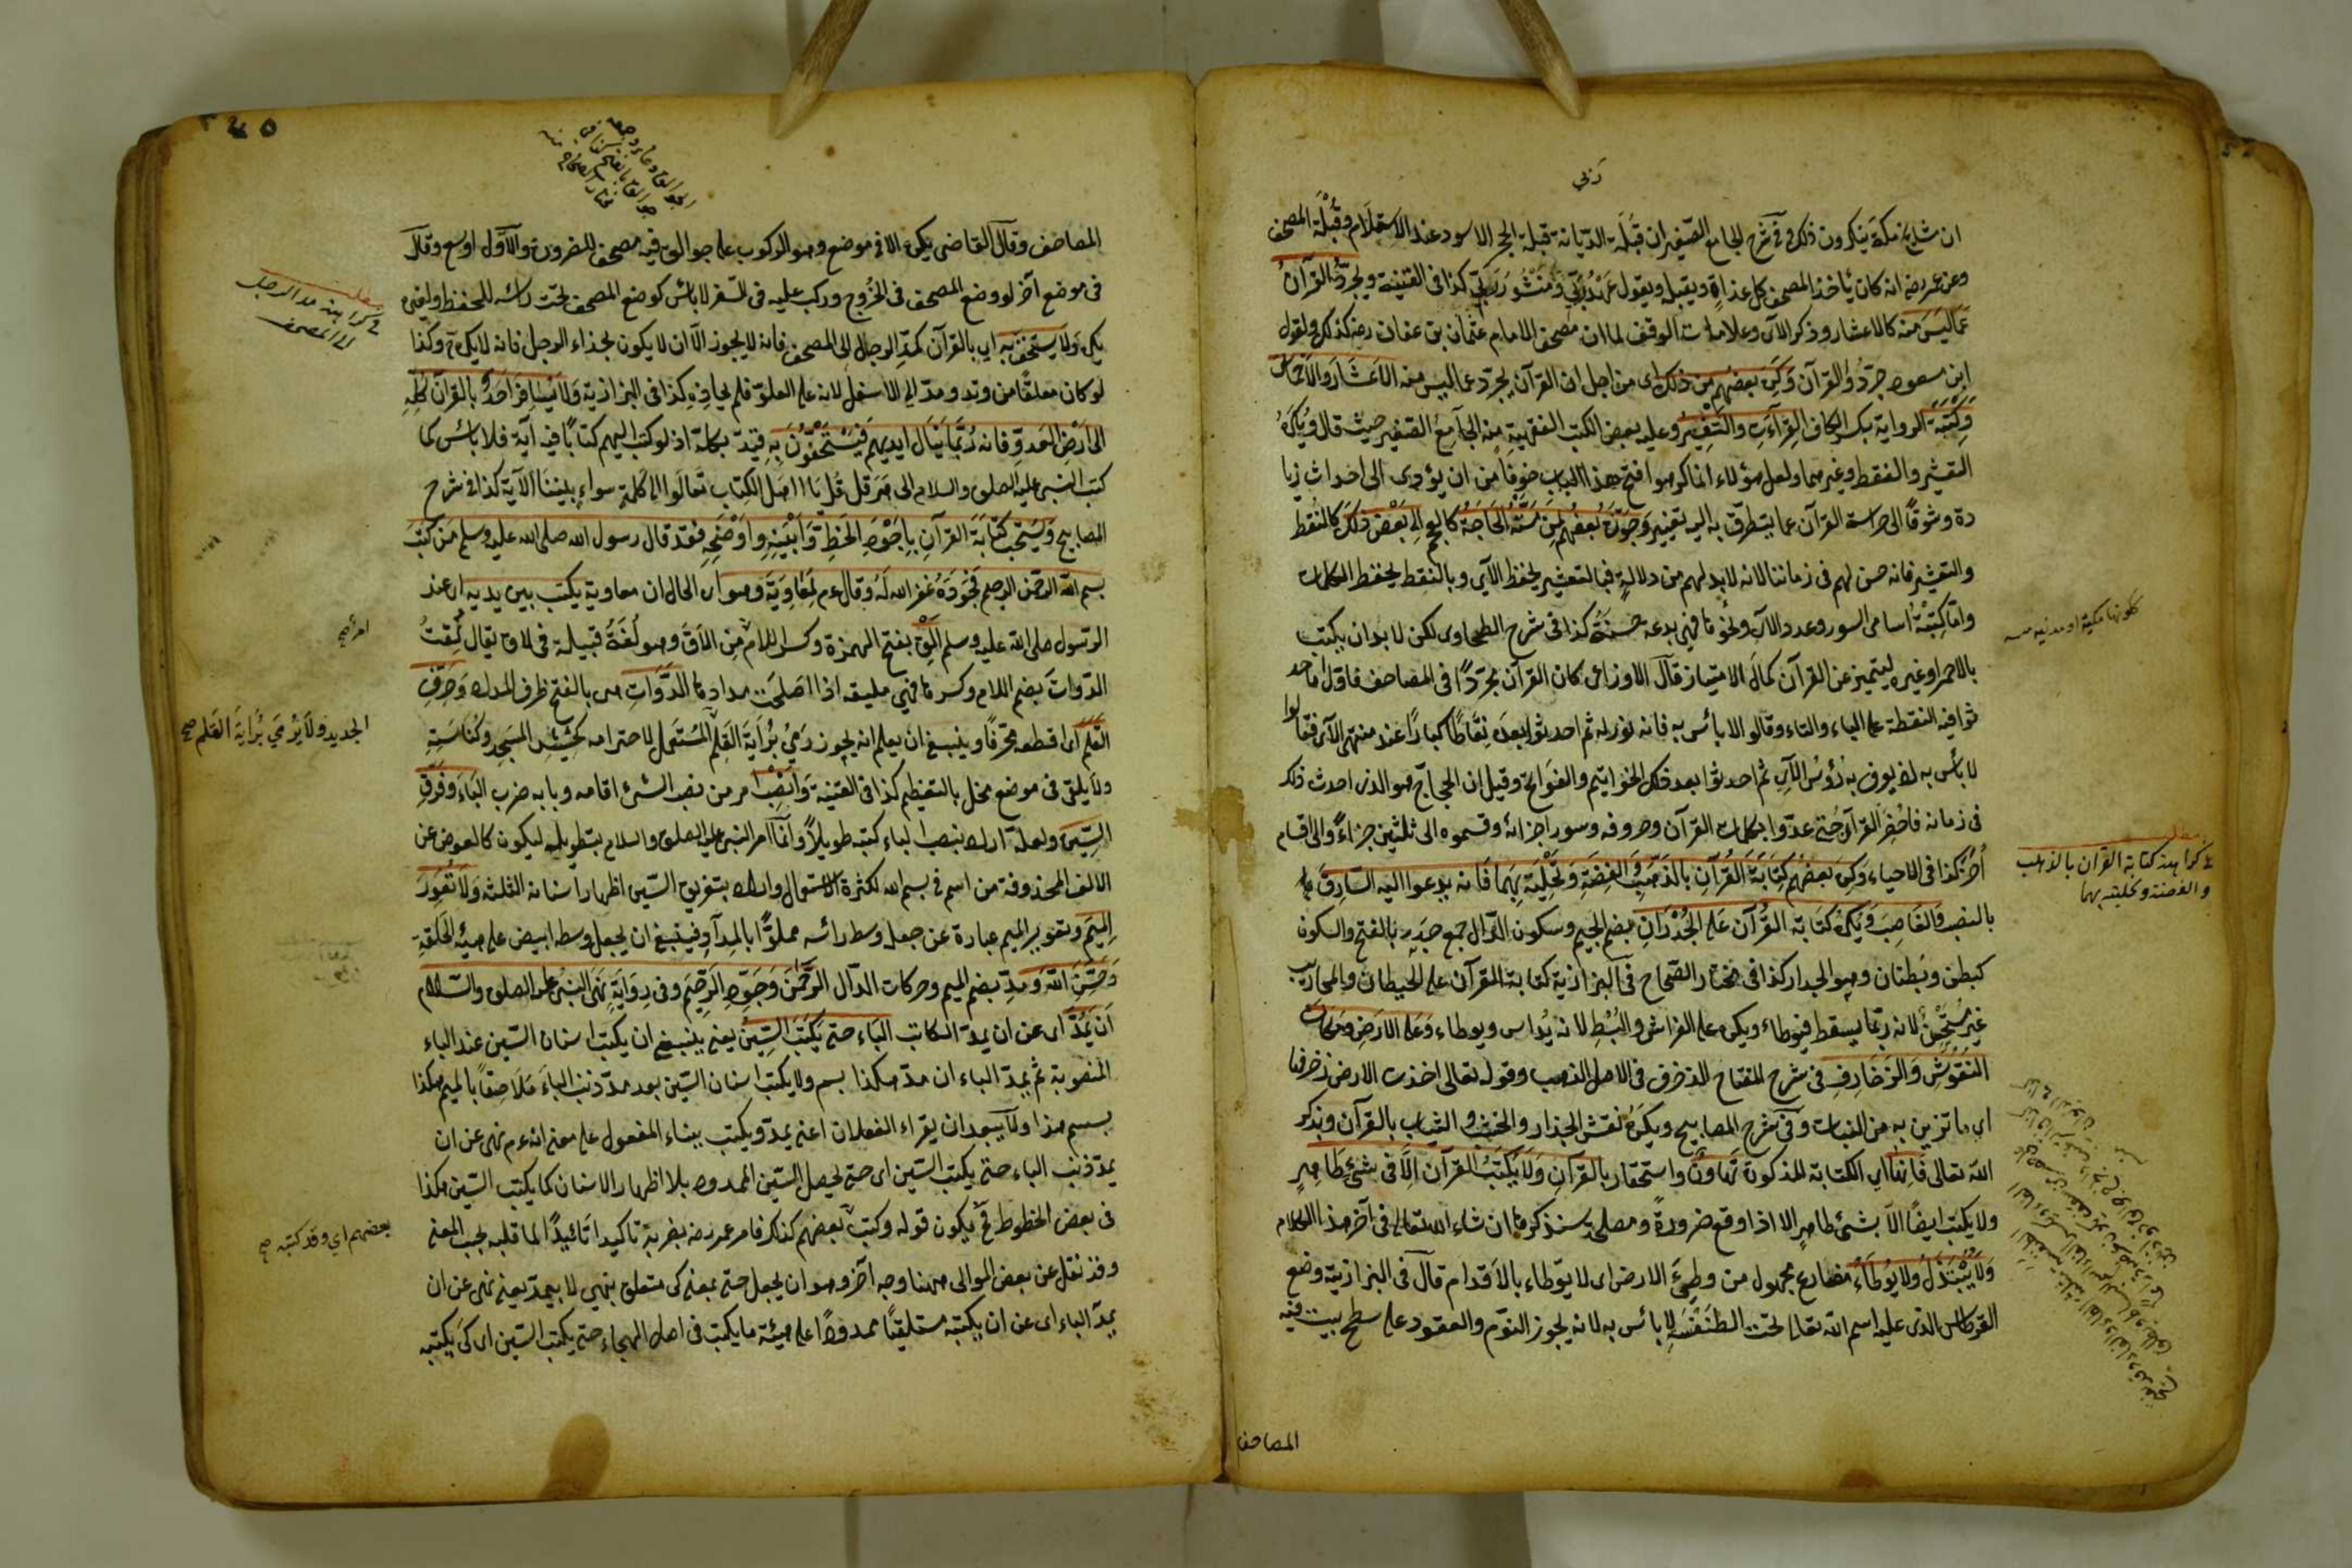 ان مشايخ مكة ينكرون ذلك وفى شرح الجامع الصغير ان قبلة الديانة قبلة الحجر الاسود عند الاستلام وقبلة المصحف
وعن عمر رضه انه كان يأخذ المصحف كل غداة ويقبله ويقول عهد ربى ومنشور ربى كذا فى القنية ويجرد القرآن
عما ليس منه كالاعشار وذكر الآى وعلامات الوقف لما ان مصحف الامام عثمان بن عفان رضه كذلك ولقول
ابن مسعود جردوا القرآن وكره بعضهم من ذلك اى من اجل ان القرآن يجرد عما ليس منه الاعشار والاخماس
وكتبة الرواية بكسر الكاف القراءت والتفسير وعليه بعض الكتب الفقهية منه الجامع الصغير حيث قال ويكره
التعشير والنقط وغيرهما ولعل هؤلاء انما كرهوا فتح هذا الباب خوفا من ان يؤدى الى احداث زيا
دة وشوقا الى حراسة القرآن عما يتطرق به اليه تغيير وجوزه بعضهم لمن مسته الحاجة كالعجم الى بعض ذلك كالنقط
والتعشير فانه حسن لهم فى زماننا لانه لابد لهم من دلالة فبالتعشير يحفظ الآى وبالنقط يحفظ الكلمات
واما كتبة اسامى السور وعدد الآى ونحوها فهى بدعة حسنة كذا فى شرح الطحاوى لكن لا بد ان يكتب
بالاحمر وغيره ليتميز عن القرآن كمال الامتياز قال الاوزاعى كان القرآن مجردا فى المصاحف فاول ما احد
ثوا فيه النقطة على الباء والتاء وقالوا لا بأس به فانه نور له ثم احدثوا بعده نقاطا كبارا عند منتهى الآى فقالوا
لا بأس به يعرف به رؤس الآى ثم احدثوا بعد ذلك الخواتيم والفواتح وقيل ان الحجاج هو الذى احدث ذلك
فى زمانه فاحضر القرآء حتى عدوا كلمات القرآن وحروفه وسور اجزائه وقسموه الى ثلثين جزاء والى اقسام
اخر كذا فى الاحياء وكره بعضهم كتابة القرآن بالذهب والفضة وتحليته بهما فانه يدعوا اليه السارق
بالنصب والغاصب ويكره كتابة القرآن على الجدران بضم الجيم وسكون الدال جمع جدر بالفتح والسكون
كبطن وبطنان وهو الجدار كذا فى مختار الصحاح فى البزازية كتابة القرآن على الحيطان والمحاريب
غير مستحسن لانه ربما يسقط فيوطاء ويكره على الفراش والبسط لانه يداس ويوطاء وعلى الارض ومكان
النقوش والزخارف فى شرح المفتاح الزخرف فى الاصل الذهب وقوله تعالى اخذت الارض زخرفها
اى ما تزين به من النبات وفى شرح المصابيح ويكره نقش الجدار والخشب والثياب بالقرآن وبذكر
الله تعالى فانها اى الكتابة المذكورة تهاون واستحقار بالقرآن ولا يكتب القرآن الا فى شئ طاهر
ولا يكتب ايضا الا بشئ طاهر الا اذا وقع ضرورة ومصلحة سنذكرها ان شاء الله تعالى فى آخر هذا الكلام
ولا يبتذل ولا يوطاء مضارع مجهول من وطئ الارض اى لا يوطاء بالاقدام قال فى البزازية وضع
القرطاس الذى عليه اسم الله تعالى تحت الطنفسة لا بائس به لانه يجوز النوم والقعود على سطح بيت فيه
المصاحف
كونها مكية او مدنية
مطلب
فى كراهة كتابة القرآن بالذهب
والفضة وتحليته بهما
المصاحف وقال القاضى يكره الا فى موضع وهو الركوب على جوالق فيه مصحف للضرورة والاول اوسع وقال
فى موضع آخر لو وضع المصحف فى الخرج وركب عليه فى السفر لا بائس كوضع المصحف تحت رأسه للحفظ ولغيره
يكره ولا يستخف به اى بالقرآن كمد الرجل الى المصحف فانه لا يجوز الا ان لا يكون بحذاء الرجل فانه لا يكره وكذا
لو كان معلقا من وتد ومد الى الاسفل لانه على العلو فلم يحاذه كذا فى البزازية ولا يسافر احد بالقرآن كله
الى ارض العدو فانه ربما ينال ايديهم فيستخفون به قيد بكله اذ لو كتب اليهم كتابا فيه آية فلا بائس كما
كتب النبى عليه الصلوة والسلام الى هرقل قل يا اهل الكتاب تعالوا الى كلمة سواء بيننا الآية كذا فى شرح
المصابيح ويستحب كتابة القرآن باجود الخط وابينه واوضحه فقد قال رسول الله صلى الله عليه وسلم من كتب
بسم الله الرحمن الرحيم فجوده غفر الله له وقال عم لمعاوية وهو اى الحال ان معاوية يكتب بين يديه اى عند
الرسول صلى الله عليه وسلم الق بفتح الهمزة وكسر اللام من الاق وهو لغة قبيلة فى لاق يقال لقت
الدوات بضم اللام وكسرها فهى مليقة اذا اصلحت مدادها الدوات هى بالفتح ظرف المداد وحرف
القلم اى اقطعه محرفا وينبغى ان يعلم انه يجوز رمى براية القلم المستعمل لاحترامه كحشيش المسجد وكناسته
ولا يلقى فى موضع يخل بالتعظيم كذا فى القنية وانصب امر من نصب الشئ اقامه وبابه ضرب الباء وفرق
السين ولعله اراد بنصب الباء كتبه طويلا وانما امر النبى عليه الصلوة والسلام بتطويله ليكون كالعوض عن
الالف المحذوفة من اسم فى بسم الله لكثرة الاستعمال واراد بتفريق السين اظهار اسنانه الثلثة ولا تعور
الميم وتعوير الميم عبارة عن جعل وسط رأسه مملوا بالمداد فينبغى ان يجعل وسطه ابيض على هيئة الحلقة
وحسن الله ومد بضم الميم وحركات الدال الرحمن وجود الرحيم وفى رواية نهى النبى عليه الصلوة والسلام
ان يمد اى عن ان يمد الكاتب الباء حتى يكتب السين يعنى ينبغى ان يكتب اسنان السين عند الباء
المنصوبة ثم يمد الباء ان مد هكذا بسم ولا يكتب اسنان السين بعد مد ذنب الباء ملاصقا بالميم هكذا
بسم هذا ولا يبعد ان يقراء الفعلان اعنى يمد ويكتب ببناء المفعول على معنى انه عم نهى عن ان
يمد ذنب الباء حتى يكتب السين اى حتى يحصل السين الممدود بلا اظهار الاسنان كما يكتب السين هكذا
فى بعض الخطوط فح يكون قوله وكتب بعضهم كذلك فامر عمر رضه بضربه تأكيدا تائيدا لما قبله بحب المعنى
وقد نقل عن بعض الموالى ههنا وجه آخر وهو ان يجعل حتى بمعنى كى متعلق بنهى لا بيمد يعنى نهى عن ان
يمد الباء اى عن ان يكتبه مستلقيا ممدودا على هيئة ما يكتب فى اصل الهجاء حتى يكتب السين اى كى يكتبه
مطلب
فى كراهة مد الرجل
الى المصحف
امر صح
الجديد ولا يرمى براية القلم صح
بعضهم اى وقد كتبه صح